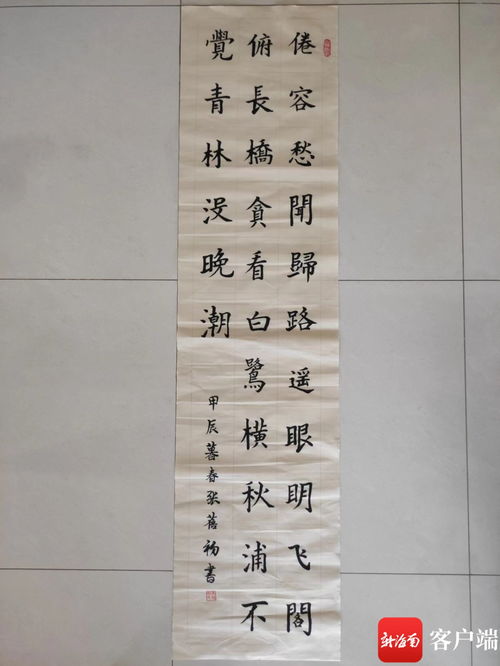 倦容愁聞歸路遥眼明飞閣
俯長橋貪看白鷺橫秋浦不
覺青林没晚潮
甲辰暮春張蓓書
新海南 客户端